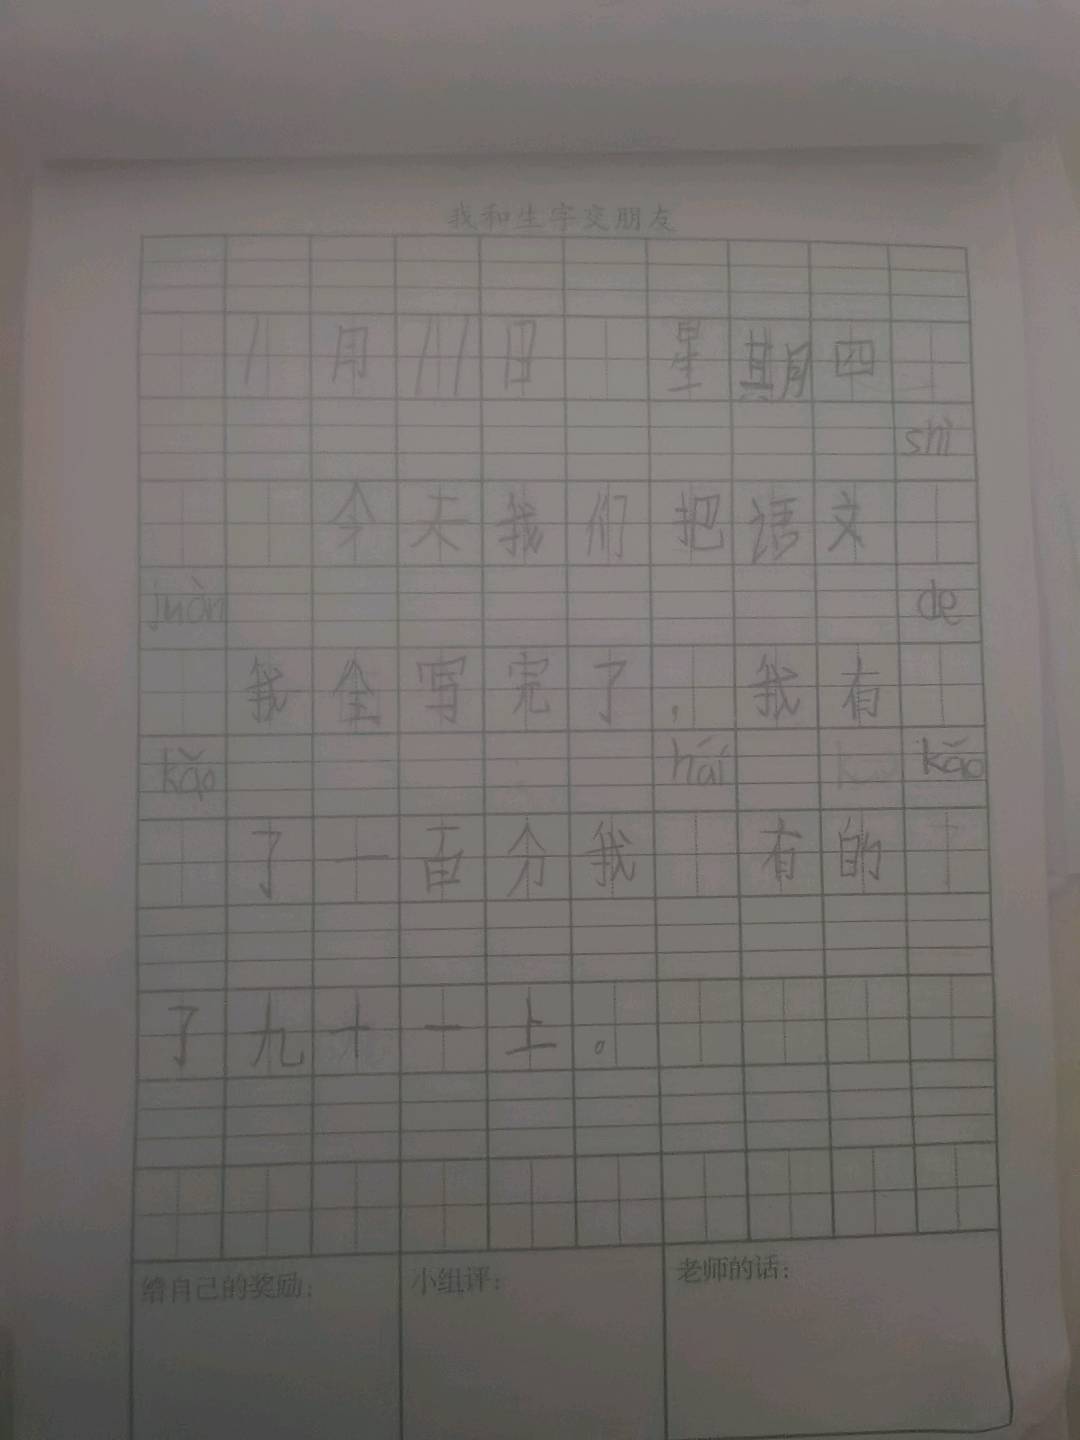 我和生字交朋友
11月111日 星期四
shì
今天我们把语文
juàn de
我全写完了，我有
kǎo hái kǎo
了一百分我 有的
了九十一上。
给自己的奖励： 小组评： 老师的话：